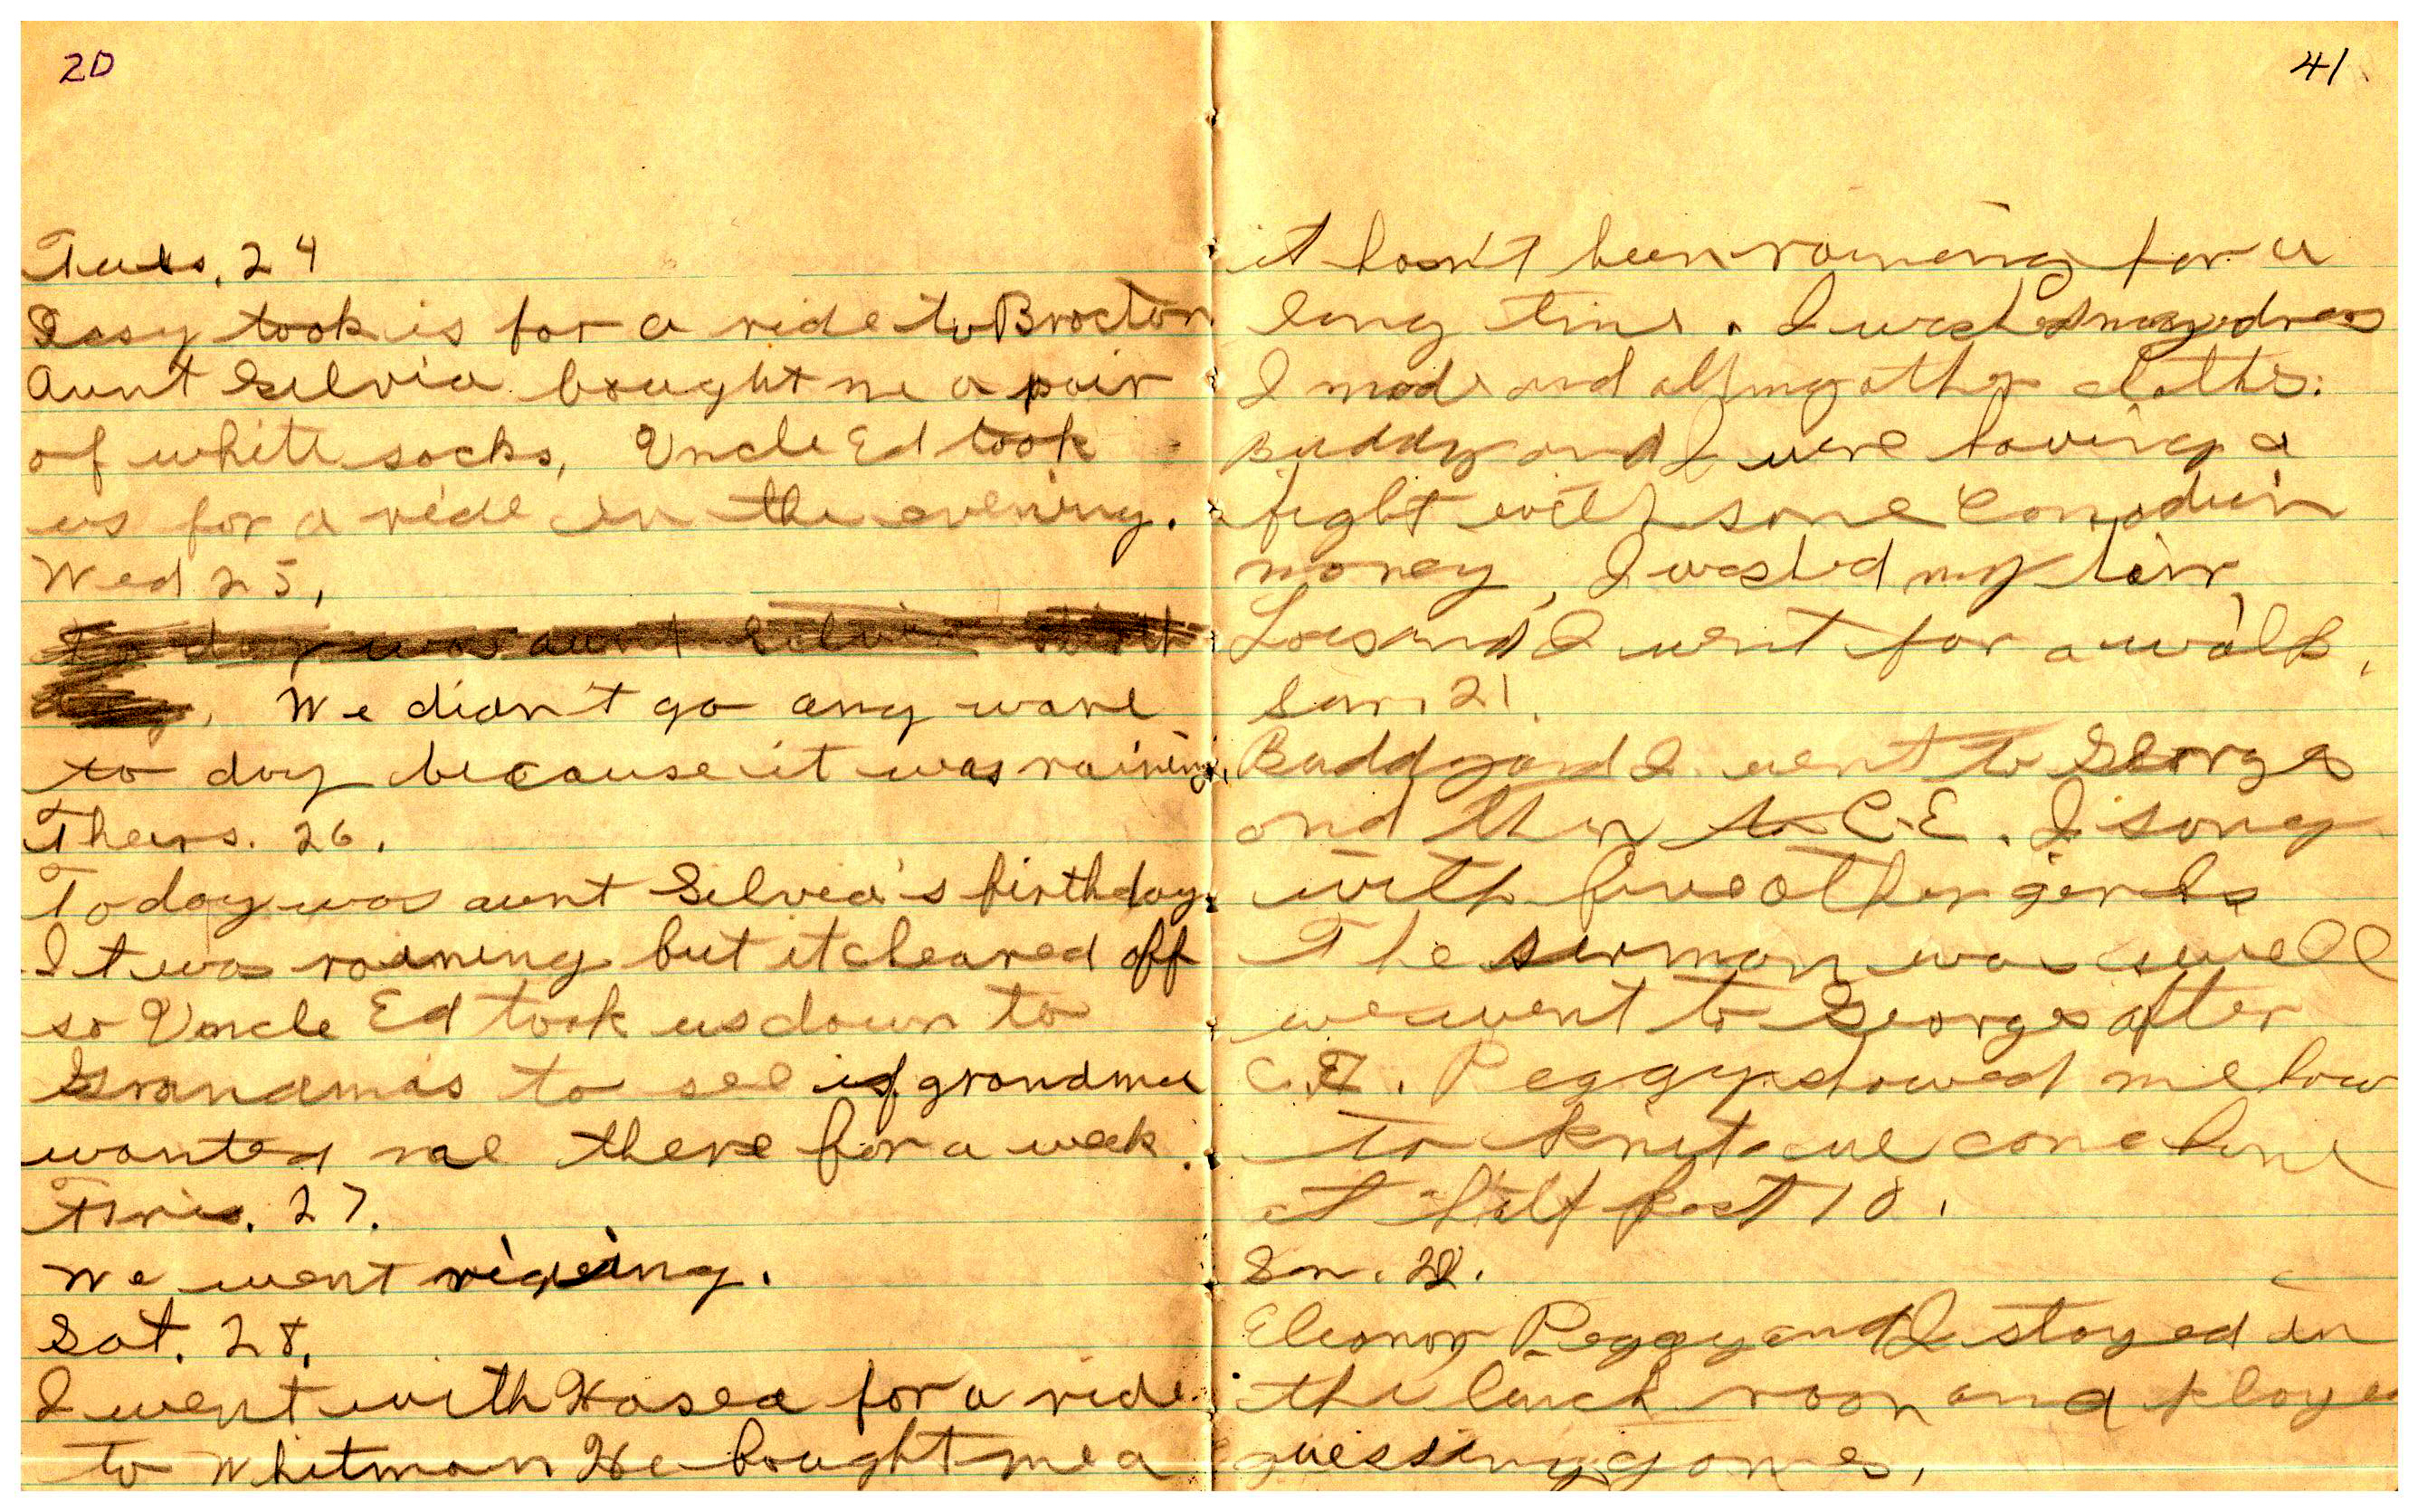 20
Tues. 24
took is for a ride to Brocton
Aunt Selvia bought me a pair
of white socks, Uncle Ed took
us for a ride in the evening.
Wed 25,
To day was aunt Selvia birth
day. We didn't go any ware
to day because it was raining.
Thers. 26.
Today was aunt Selvia's birthday.
It was raining but it cleared off
so Uncle Ed took us down to
Grandmas to see if grandma
wanted me there for a week.
Fris. 27.
We went rideing.
Sat. 28.
I went with Hosea for a ride
to Whitman He bought me a
41
it hasn't been raining for a
long time. I washed my dress
I made and all my other clothes.
Buddy and I were having a
fight with some Canadian
money, I washed my hair,
Lois and I went for a walk.
Sun. 21.
Buddy and I went to Georges
and then to C.E. I song
with five other gerls
The sermon was swell
we went to Georges after
C.E. Peggy showed me how
to knit we came home
at half past 10.
22.
Eleonor Peggy and I stayed in
the lunch room and playe
guessing games.